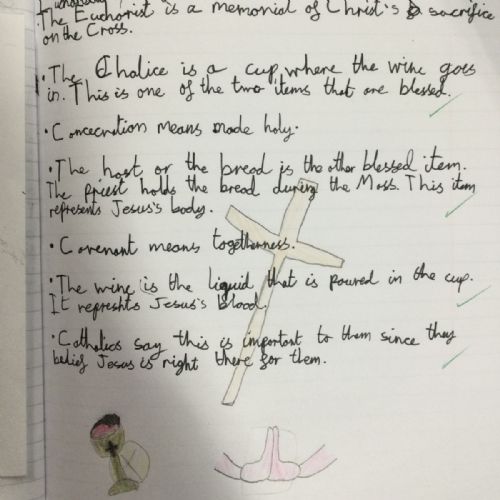 The Eucharist is a memorial of Christ's sacrifice
on the Cross.
• The Chalice is a cup where the wine goes
in. This is one of the two items that are blessed.
• Concecration means made holy.
• The host or the bread is the other blessed item.
The Priest holds the bread during the Mass. This item
represents Jesus's body.
• Covenant means togetherness.
• The wine is the liquid that is poured in the cup.
It represnts Jesus's Blood.
• Catholics say this is important to them since they
belief Jesus is right there for them.